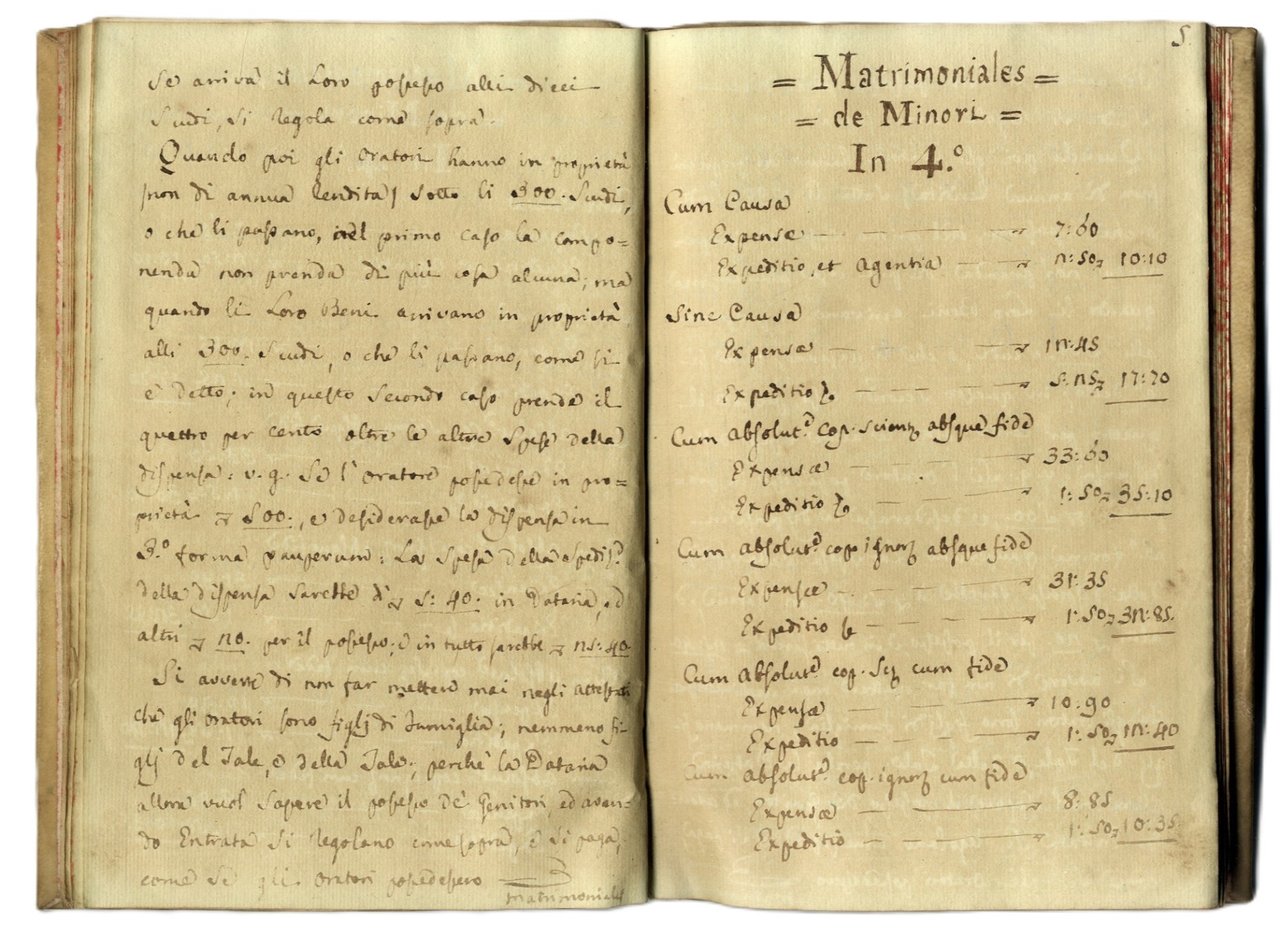 Se arriva il Loro possesso alli dieci
Scudi, si regola come sopra.
Quando poi gli Oratori hanno in proprietà
/non di annua rendita/ sotto li 300. Scudi,
o che li passano, nel primo caso la compo=
nenda non prende di più cosa alcuna; ma
quando li Loro Beni arrivano in proprietà
alli 300. Scudi, o che li passano, come si
è detto; in questo secondo caso prende il
quattro per cento oltre le altre spese della
dispensa: v. g. Se l'Oratore possedesse in pro=
prietà 500:, e desiderasse la dispensa in
3.º forma pauperum: La spesa della spediz.e
della dispensa sarebbe di 5: 40: in Dataria, ed
altri 20. per il possesso; e in tutto sarebbe 25: 40.
Si avverte di non far mettere mai negli attestati
che gli Oratori sono figlj di Famiglia; nemmeno fi=
glj del Tale, e della Tale; perchè la Dataria
allora vuol sapere il possesso de' Genitori, ed aven=
do Entrata si regolano come sopra, e si paga,
come se gli Oratori possedessero
Matrimoniales
5.
= Matrimoniales =
= de Minori =
In 4.º
Cum Causa
Expensæ 7:60
Expeditio, et Agentia 2:50 10:10
Sine Causa
Expensæ 12:45
Expeditio 5:25 17:70
Cum absolut.e cop. scient. absque fide
Expensæ 33:60
Expeditio 1:50 35:10
Cum absolut.e cop. ignor. absque fide
Expensæ 31:35
Expeditio 1:50 32:85.
Cum absolut.e cop. Sc. cum fide
Expensæ 10:90
Expeditio 1:50 12:40
Cum absolut.e cop. ignor. cum fide
Expensæ 8:85
Expeditio 1:50 10:35.